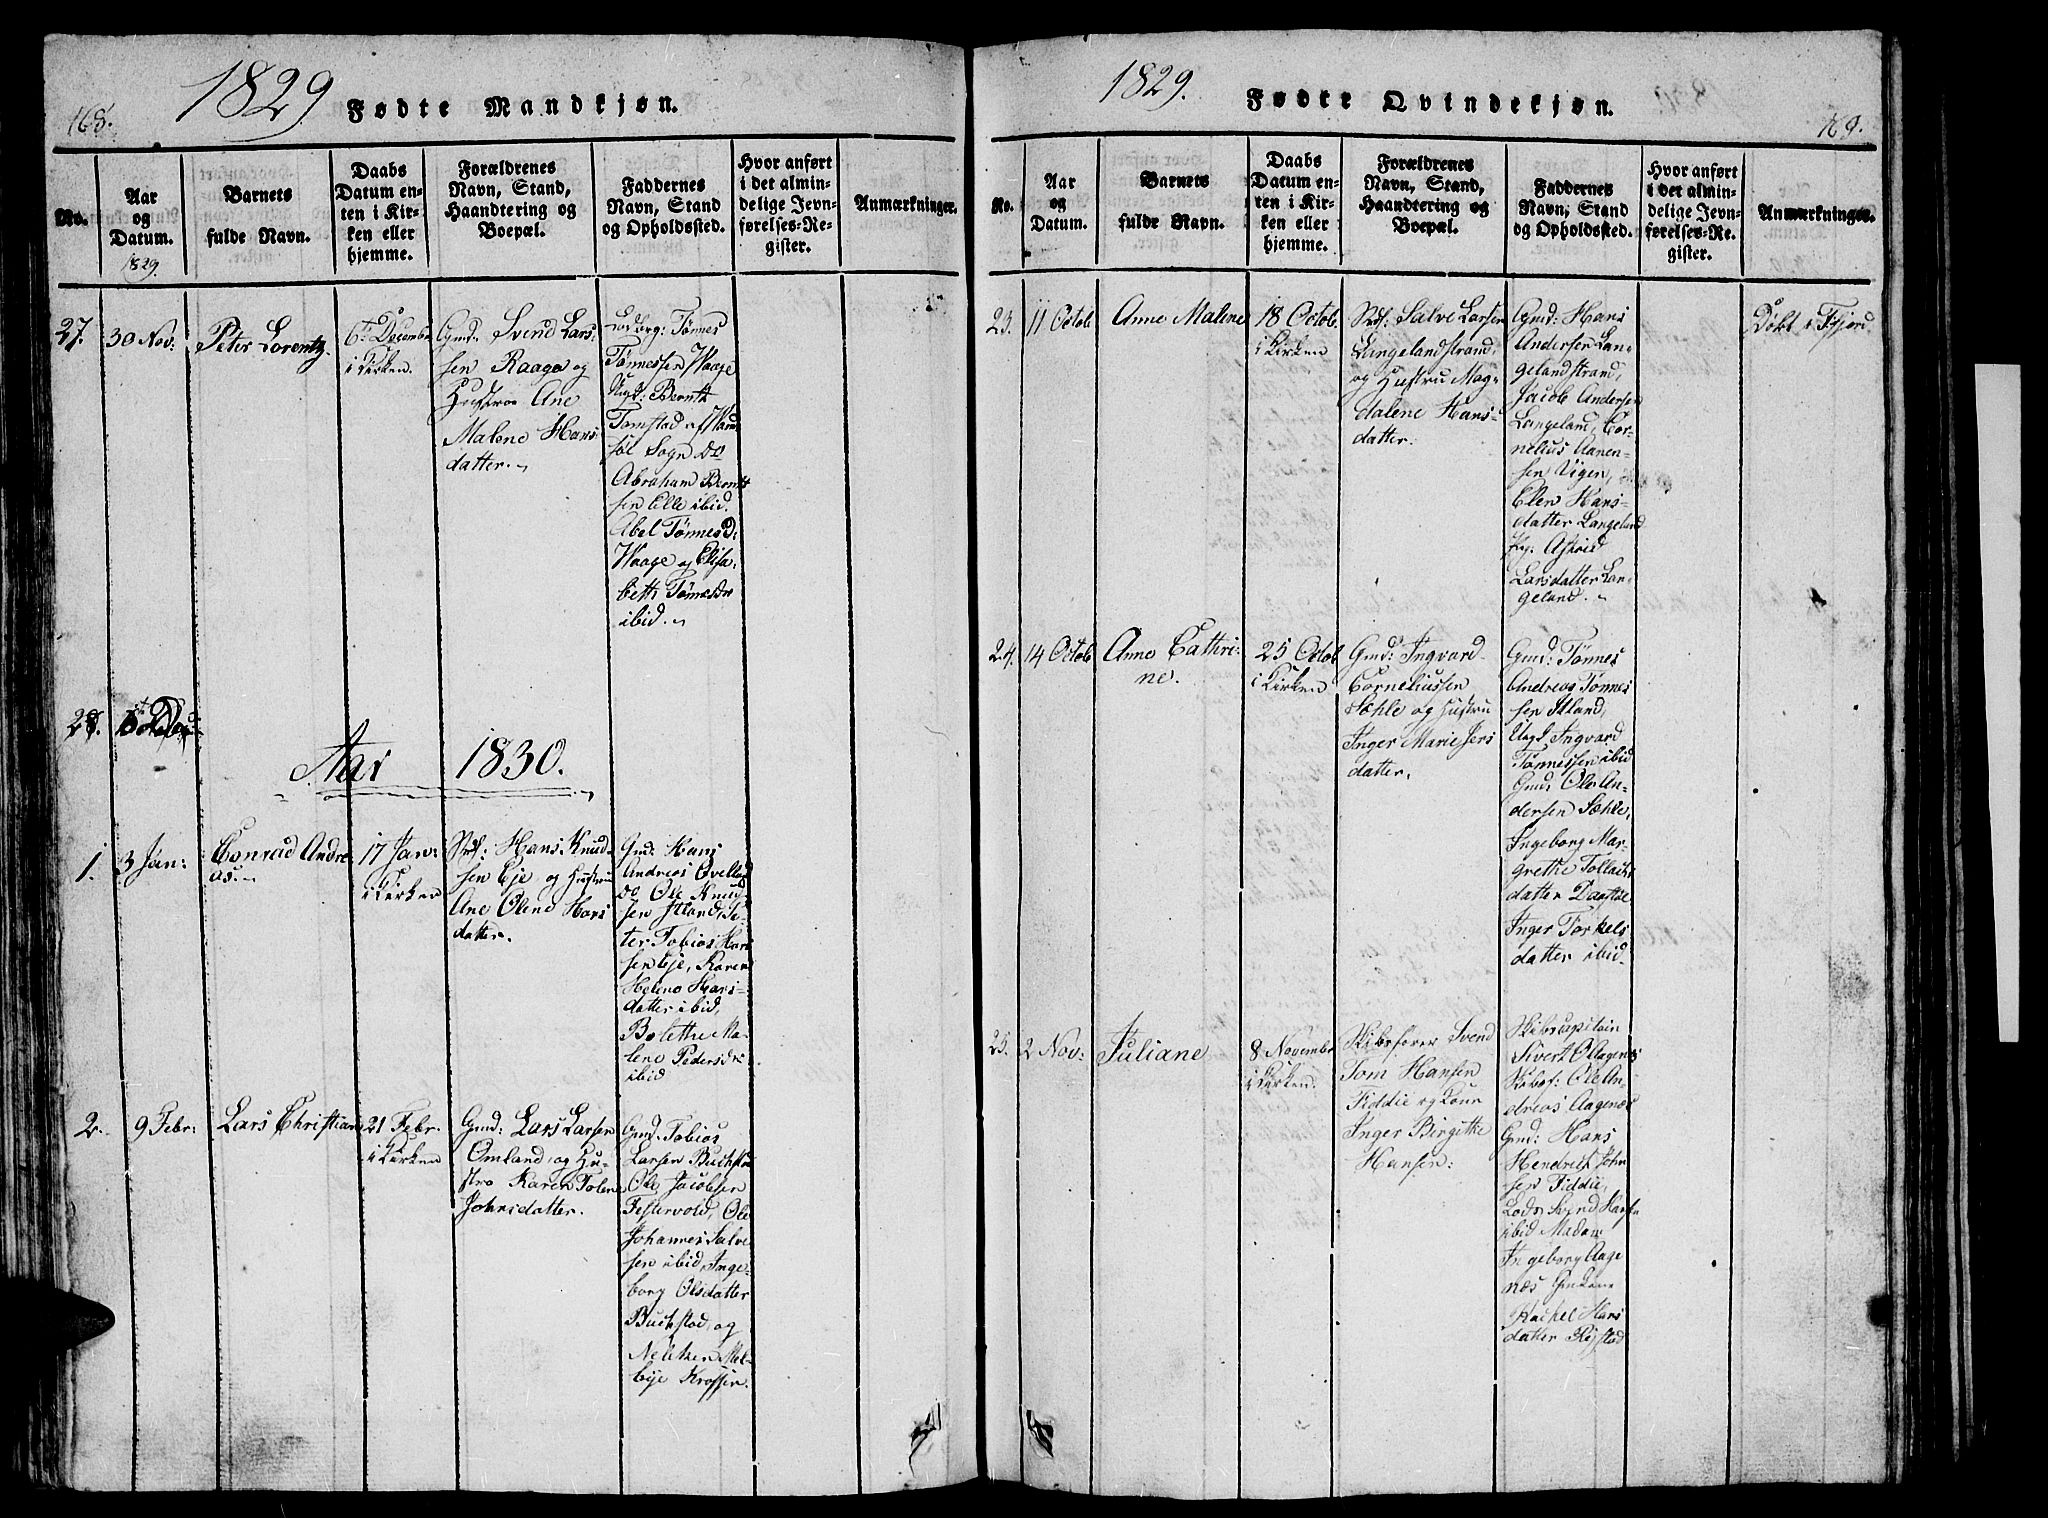 168.
1829
Fødte Mandkjøn.
No.
Aar
og
Datum.
1829.
Barnets
fulde Navn.
Daabs
Datum en-
ten i Kir-
ken eller
hjemme.
Forældrenes
Navn, Stand,
Haandtering og
Boepæl.
Faddernes
Navn, Stand
og Opholdssted.
Hvor anført
i det almin-
delige Jevn-
førelses-Re-
gister.
Anmærkninger.
27.
30 Nov:
Peter Lorentz.
6te Decembr
i Kirken.
Gmd. Svend Lars-
sen Raage og
Hustroe Ane
Malene Hans-
datter.
Lodborg: Tønnes
Tønnessen Waage
Ungk: Bernth
Tomstad af
Sogn do
Abraham Bernt
sen Elle ibid.
Abel Tønnes D:
Waage og Elisa-
beth Tønnesdr
ibid.
28.
Aar 1830.
1.
3 Jan:
Conrad Andre
as.
17 Jan:
i Kirken
Hans Knud-
sen Eje og Hustrue
Ane Olene Hans
datter.
Gmd: Hans
Andreas Øvelland
do Ole Knud-
sen Itland, Pe-
ter Tobias Han
sen Eje, Karen
Helene Hans-
datter ibid,
Bolethe Ma-
lene Pedersdr
ibid
2.
9 Febr:
Lars Christian
21 Febr.
i Kirken
Gmd: Lars Larsen
Omland, og Hu-
stro Karen Tolene
Johnsdatter.
Gmd: Tobias
Larsen Buchstad
Ole Jacobsen
Festervold, Ole
Johannes Salve
sen ibid, Inge-
borg Olsdatter
Buchstad, og
Mel-
bye
169.
1829.
Fødte Qvindekjøn.
No.
Aar
og
Datum.
Barnets
fulde Navn.
Daabs
Datum en-
ten i Kir-
ken eller
hjemme.
Forældrenes
Navn, Stand,
Haandtering og
Boepæl.
Faddernes
Navn, Stand
og Opholdssted.
Hvor anført
i det almin-
delige Jevn-
førelses-Re-
gister.
Anmærkninger.
23.
11 Octob
Anne Malene
18 Octob.
i Kirken
Salve Larsen
Langelandstrand,
og Hustru Mag-
dalene Hans-
datter.
Gmd: Hans
Andersen Lan-
gelandstrand,
Jacob Andersen
Langeland, Cor-
nelius Aanen-
sen Vigen,
Elen Hans-
datter Langeland
Pig: Astrid
Larsdatter Lan-
geland.
Døbt i Fjord
24.
14 Octob
Anne Cathri-
ne.
25 Octob
i Kirken
Gmd: Ingvard
Corneliussen
Sæhle og Hustru
Inger Marie Jens
datter.
Gmd: Tønnes
Andreas Tønnes
sen Itland,
Ungk Ingvard
Tønnessen ibid
Gmd: Ole An-
dersen Sæhle,
Ingeborg Mar-
grethe Tollachs
datter
Inger Torkels
datter ibid.
25.
2 Nov:
Juliane
8 Novembr
i Kirken.
Skibsfører Svend
Tom Hansen
Fiddie og Kone
Inger Birgitte
Hansen:
Skibscapitain
Sivert O Aagenæs
Skibsf: Ole An-
dreas Aagenæs
Gmd: Hans
Hendrich John
sen Fiddie,
Lods Svend Hansen
ibid Madam
Ingeborg Aage
næs
Rachel Hans
datter